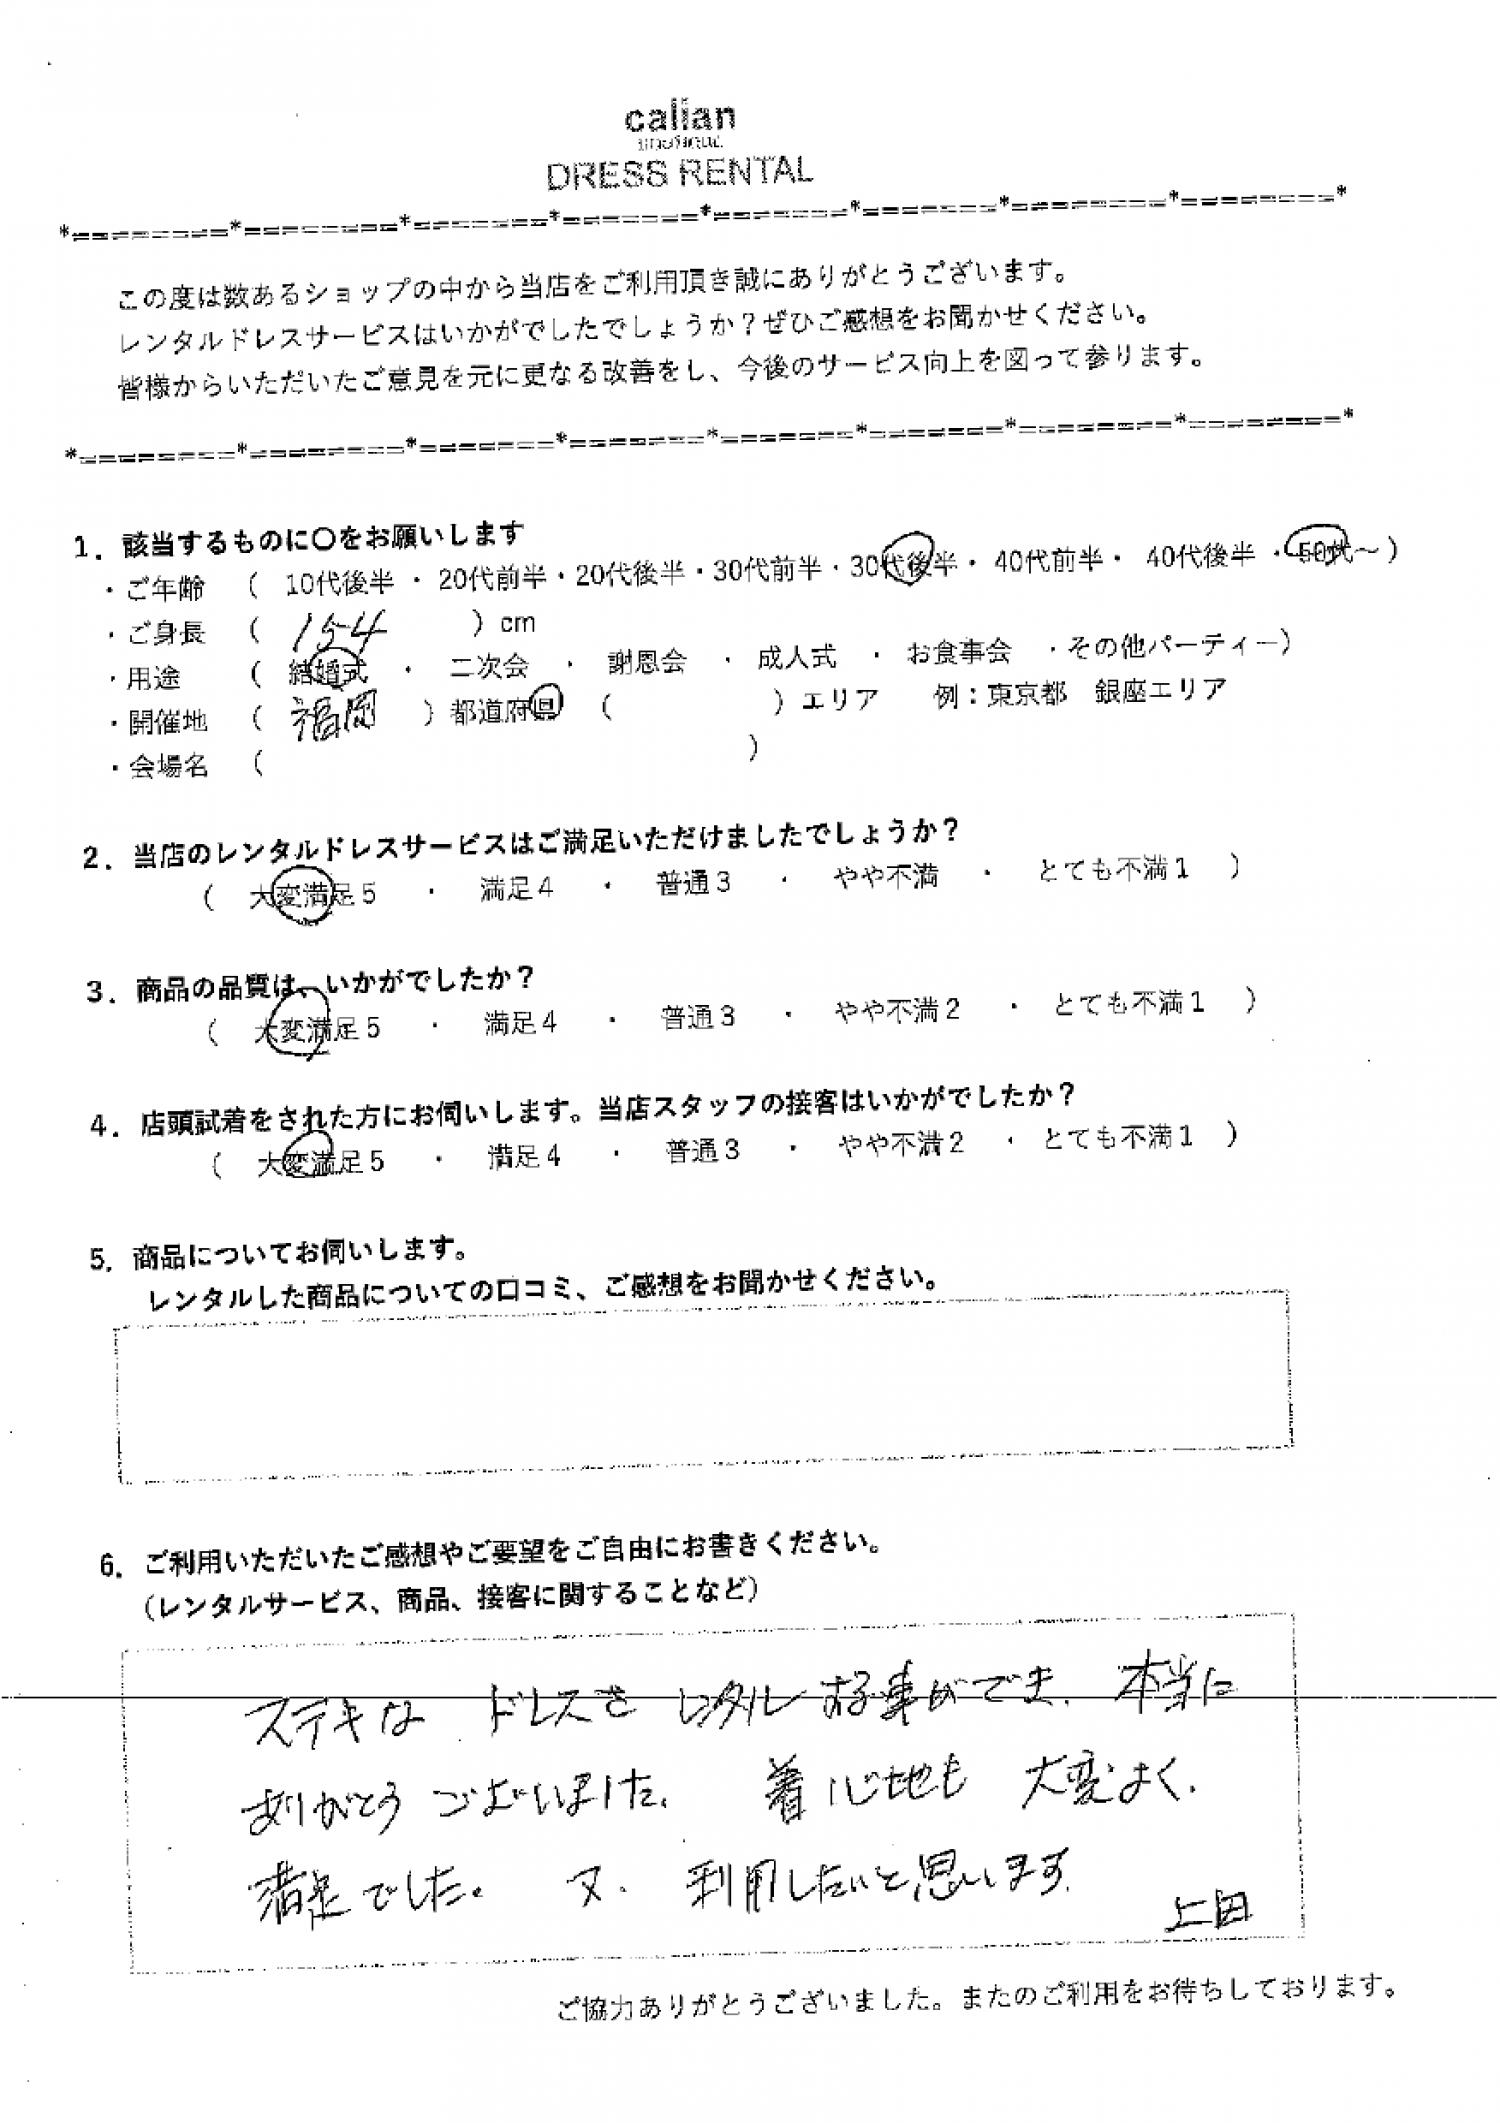 calian
DRESS RENTAL
*========*========*=======*=======*=======*=======*========*========*
この度は数あるショップの中から当店をご利用頂き誠にありがとうございます。
レンタルドレスサービスはいかがでしたでしょうか？ぜひご感想をお聞かせください。
皆様からいただいたご意見を元に更なる改善をし、今後のサービス向上を図って参ります。
*========*========*=======*=======*=======*=======*========*========*
1．該当するものに〇をお願いします
・ご年齢 （ 10代後半 ・ 20代前半・20代後半・30代前半・30代後半・ 40代前半・ 40代後半 ・ 50代～ ）
・ご身長 （ 154 ）cm
・用途 （ 結婚式 ・ 二次会 ・ 謝恩会 ・ 成人式 ・ お食事会 ・その他パーティー）
・開催地 （ 福岡 ）都道府県 （ ）エリア 例：東京都 銀座エリア
・会場名 （ ）
2．当店のレンタルドレスサービスはご満足いただけましたでしょうか？
（ 大変満足５ ・ 満足４ ・ 普通３ ・ やや不満 ・ とても不満１ ）
3．商品の品質は、いかがでしたか？
（ 大変満足５ ・ 満足４ ・ 普通３ ・ やや不満２ ・ とても不満１ ）
4．店頭試着をされた方にお伺いします。当店スタッフの接客はいかがでしたか？
（ 大変満足５ ・ 満足４ ・ 普通３ ・ やや不満２ ・ とても不満１ ）
5．商品についてお伺いします。
レンタルした商品についての口コミ、ご感想をお聞かせください。
6．ご利用いただいたご感想やご要望をご自由にお書きください。
（レンタルサービス、商品、接客に関することなど）
ステキな ドレスを レンタルする事ができ、本当に
ありがとう ございました。 着心地も 大変よく、
満足でした。 又、利用したいと思います。
上田
ご協力ありがとうございました。またのご利用をお待ちしております。